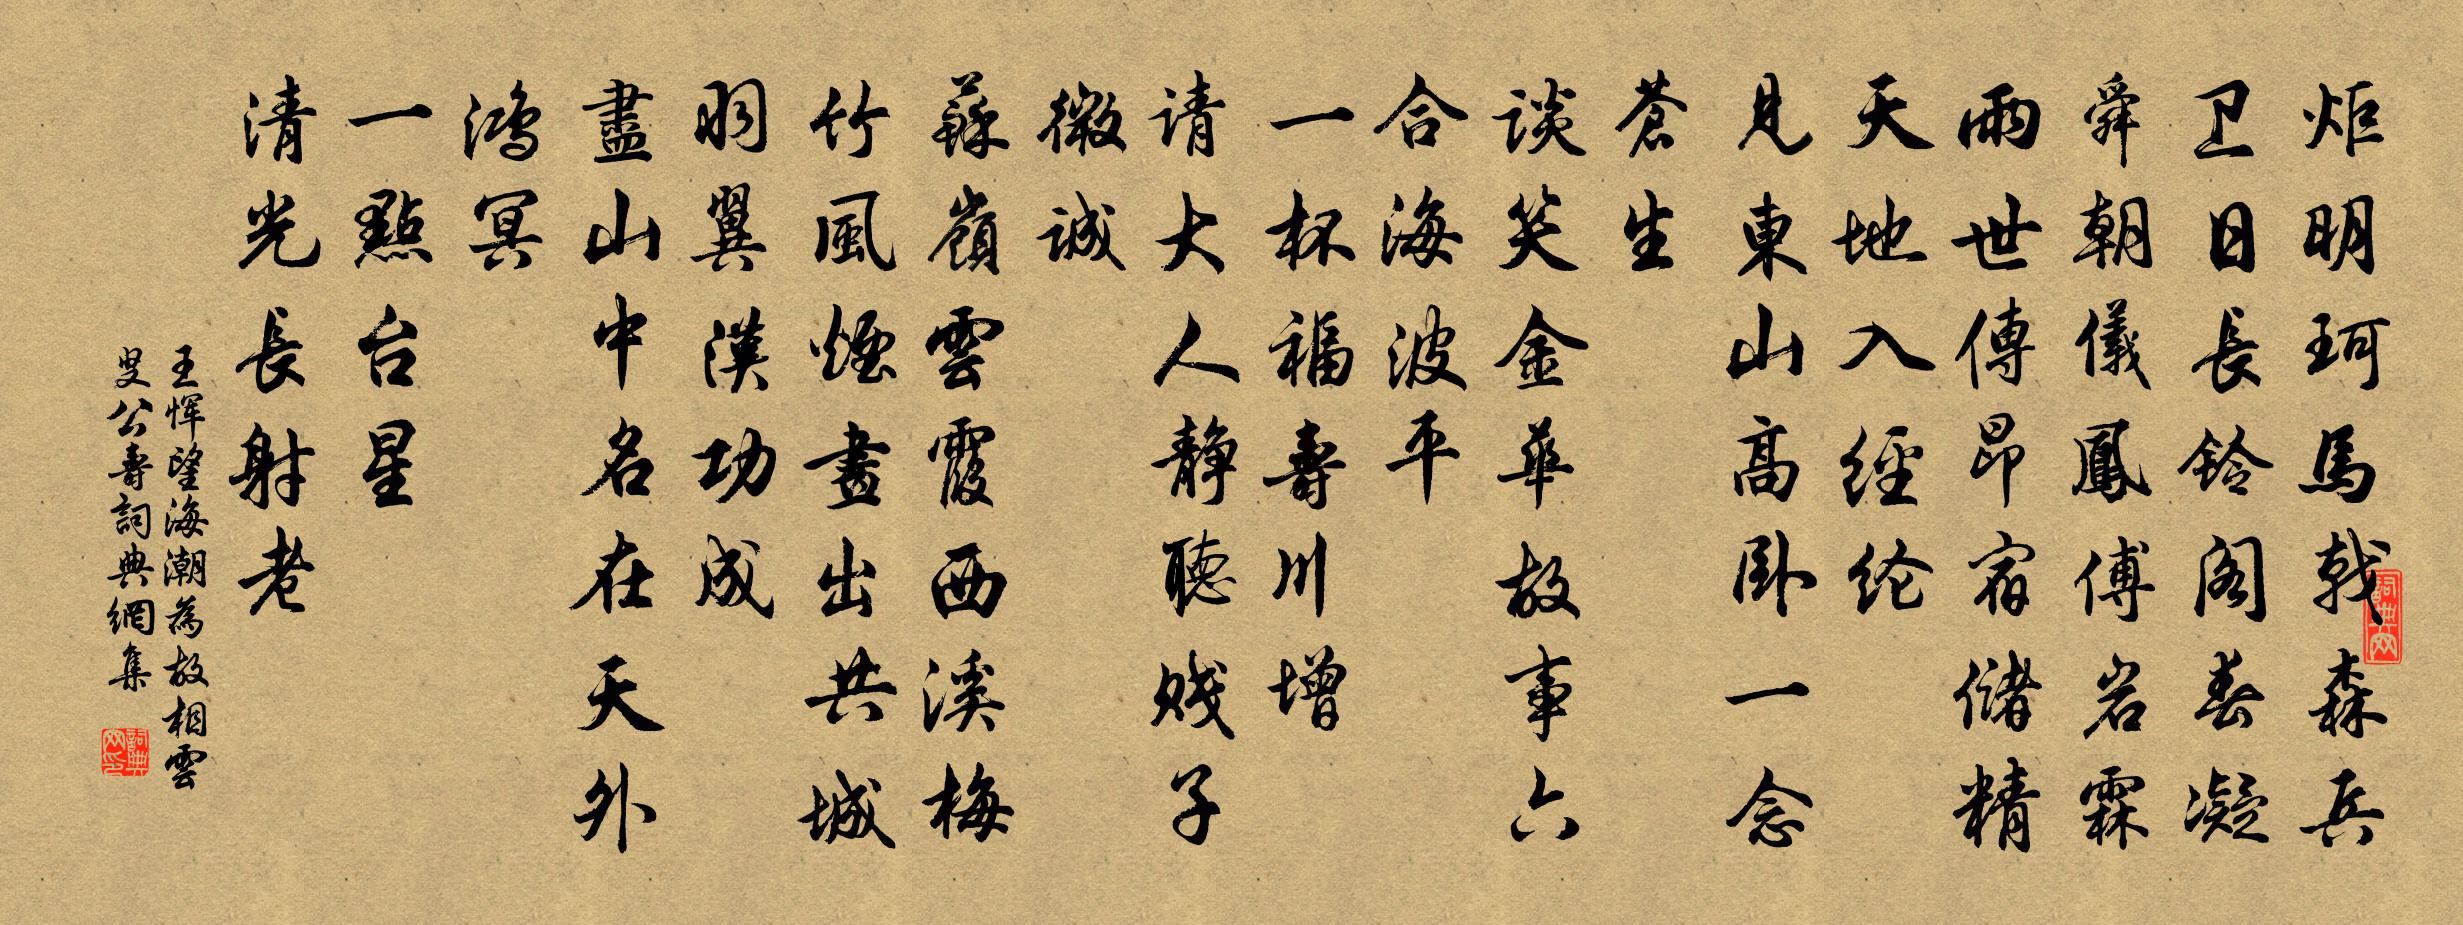 炬明珂馬戟森兵
卫日長鈴阁春凝
舜朝儀鳳傅岩霖
雨世傳昂宿儲精
天地入經纶
見東山高卧一念
蒼生
談笑金華故事六
合海波平
一杯福壽川增
请大人静聽賤子
微誠
蘇嶺雲霞西溪梅
竹風煙畫出共城
羽翼漢功成
盡山中名在天外
鴻冥
一點台星
清光長射老
王惲望海潮為故相雲
叟公壽詞典網集
詞典网
詞典网